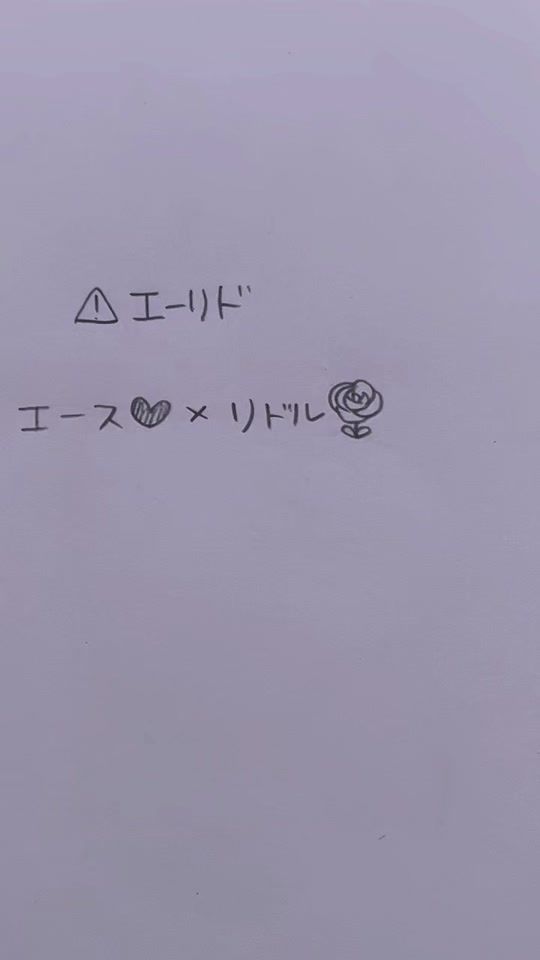 ⚠エーリド
エース♥×リドル🌹